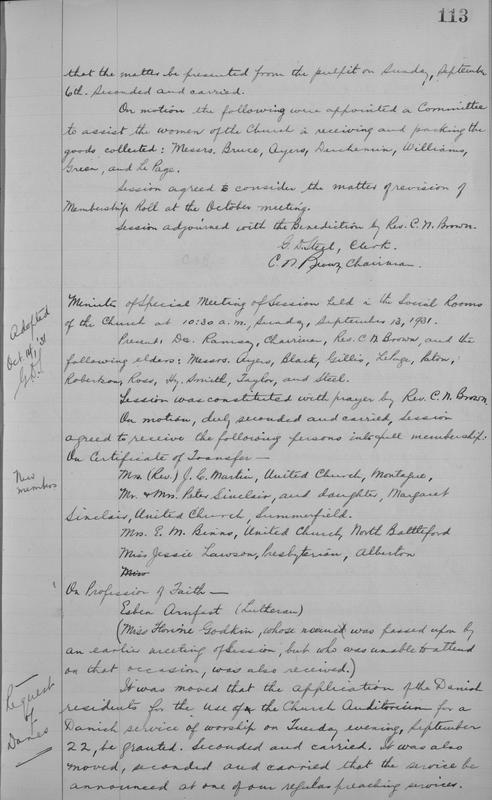 113
that the matter be presented from the pulpit on Sunday, September
6th. Seconded and carried.
On motion the following were appointed a Committee
to assist the women of the Church in receiving and packing the
goods collected: Messrs. Bruce, Ayers, Duchemin, Williams,
Green, and Le Page.
Session agreed to consider the matter of revision of
Membership Roll at the October meeting.
Session adjourned with the Benediction by Rev. C. N. Brown.
G. D. Steel, Clerk.
C. N. Brown, Chairman.
Adopted
Oct. 14, '31
G.D.S
Minutes of Special Meeting of Session held in the Social Rooms
of the Church at 10:30 a.m., Sunday, September 13, 1931.
Present: Dr. Ramsay, Chairman, Rev. C. N. Brown, and the
following elders: Messrs. Ayers, Black, Gillis, LePage, Paton,
Robertson, Ross, Hy. Smith, Taylor, and Steel.
Session was constituted with prayer by Rev. C. N. Brown
On motion, duly seconded and carried, Session
agreed to receive the following persons into full membership:
On Certificate of Transfer —
New
members
Mrs. (Rev.) J. C. Martin, United Church, Montague,
Mr. & Mrs. Peter Sinclair, and daughter, Margaret
Sinclair, United Church, Summerfield.
Mrs. E. M. Binns, United Church, North Battleford
Miss Jessie Lawson, Presbyterian, Alberton
Miss
On Profession of Faith —
Esben Arnfast (Lutheran)
(Miss Florence Godkin, whose name was passed upon by
an earlier meeting of Session, but who was unable to attend
on that occasion, was also received.)
Request
of
Danes
It was moved that the application of the Danish
residents for the use of the Church Auditorium for a
Danish service of worship on Tuesday evening, September
22, be granted. Seconded and carried. It was also
moved, seconded and carried that the service be
announced at one of our regular preaching services.